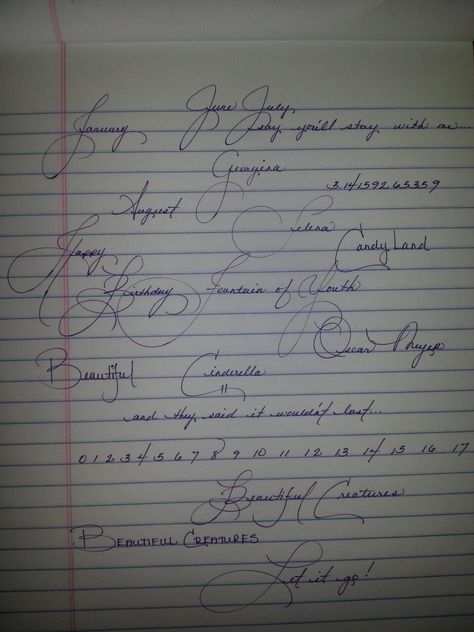 June July,
January say you'll stay with me...
Georgina
3.14159265359
August
Selena
Happy Candy Land
Birthday Fountain of Youth
Oscar
Beautiful Cinderella
and they said it wouldn't last...
0 1 2 3 4 5 6 7 8 9 10 11 12 13 14 15 16 17
Beautiful Creatures
BEAUTIFUL CREATURES
Let it go!